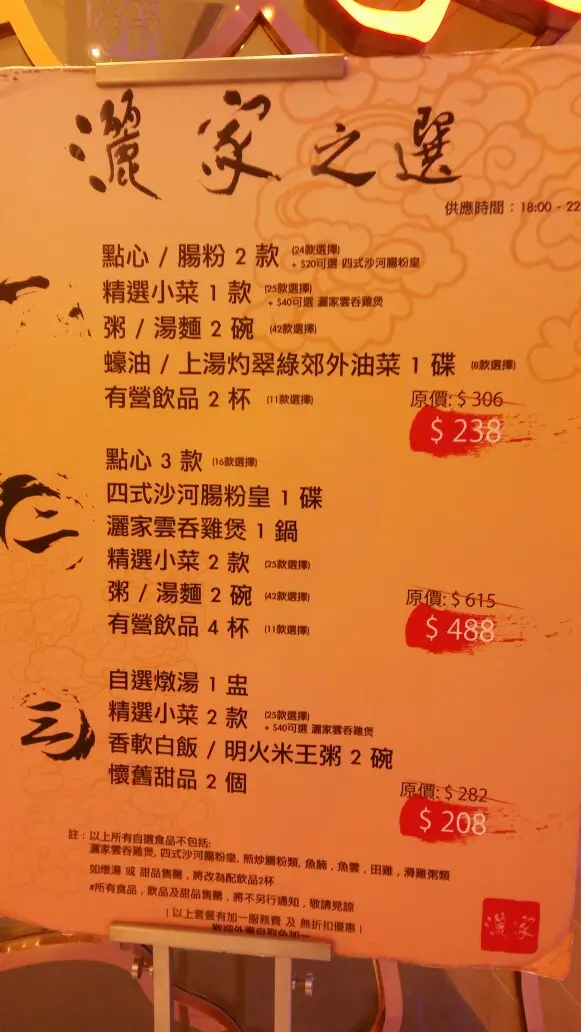 灑家之選
供應時間：18:00 - 22
一
點心 / 腸粉 2 款 (24款選擇)
+ $20可選 四式沙河腸粉皇
精選小菜 1 款 (25款選擇)
+ $40可選 灑家雲吞雞煲
粥 / 湯麵 2 碗 (42款選擇)
蠔油 / 上湯灼翠綠郊外油菜 1 碟 (8款選擇)
有營飲品 2 杯 (11款選擇)
原價: $ 306
$ 238
二
點心 3 款 (16款選擇)
四式沙河腸粉皇 1 碟
灑家雲吞雞煲 1 鍋
精選小菜 2 款 (25款選擇)
粥 / 湯麵 2 碗 (42款選擇)
有營飲品 4 杯 (11款選擇)
原價: $ 615
$ 488
三
自選燉湯 1 盅
精選小菜 2 款 (25款選擇)
+ $40可選 灑家雲吞雞煲
香軟白飯 / 明火米王粥 2 碗
懷舊甜品 2 個
原價: $ 282
$ 208
註：以上所有自選食品不包括:
灑家雲吞雞煲, 四式沙河腸粉皇, 煎炒腸粉類, 魚腩 , 魚雲 , 田雞 , 滑雞粥類
如燉湯 或 甜品售罄 , 將改為配飲品2杯
#所有食品 , 飲品及甜品售罄 , 將不另行通知 , 敬請見諒
( 以上套餐有加一服務費 及 無折扣優惠 )
歡迎外賣自取免加一
灑家